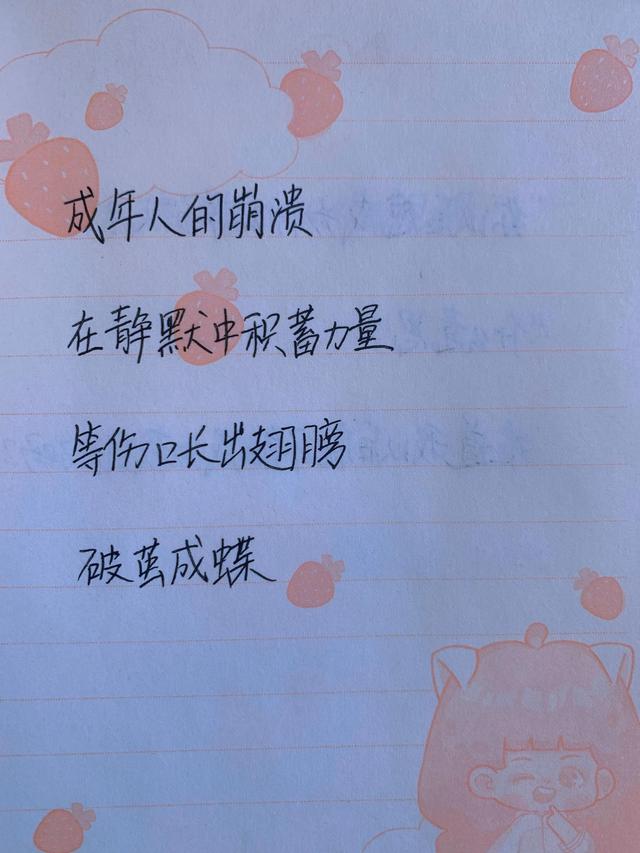 成年人的崩溃
在静默中积蓄力量
等伤口长出翅膀
破茧成蝶